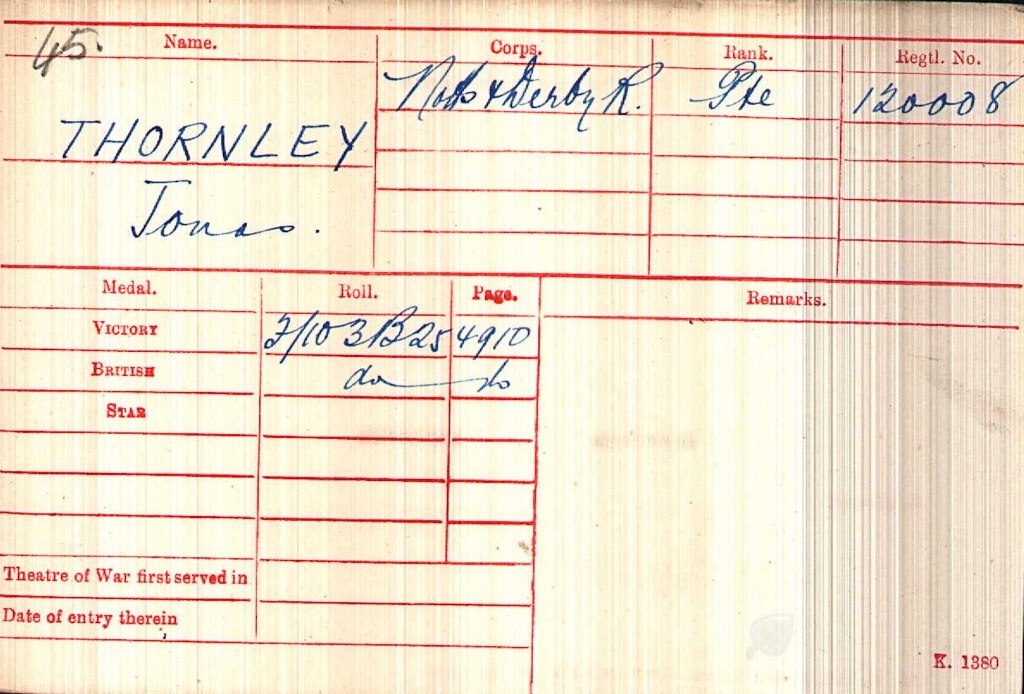 45.
Name. Corps. Rank. Regtl. No.
Notts & Derby R. Pte 120008
THORNLEY
Jonas.
Medal. Roll. Page. Remarks.
VICTORY J/103B25 4910
BRITISH do do
STAR
Theatre of War first served in
Date of entry therein
K. 1380